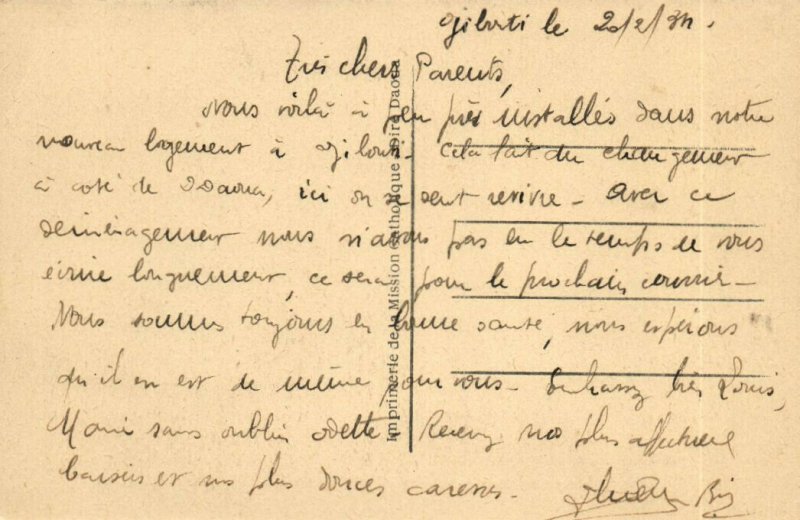 Djibouti le 20/2/34.
Très chers Parents,
Nous voilà à peu près installés dans notre
nouveau logement à Djibouti. Cela fait du changement
à coté de Ddaoua, ici on se sent revivre - Avec ce
déménagement nous n'avons pas eu le temps de vous
écrire longuement, ce sera pour le prochain courrier -
Nous sommes toujours en bonne santé, nous espérons
qu'il en est de même pour vous - Embrassez bien Louis,
Marie sans oublier Odette. Recevez nos plus affectueux
baisers et nos plus douces caresses -
Imprimerie de la Mission Catholique Diré Daoua